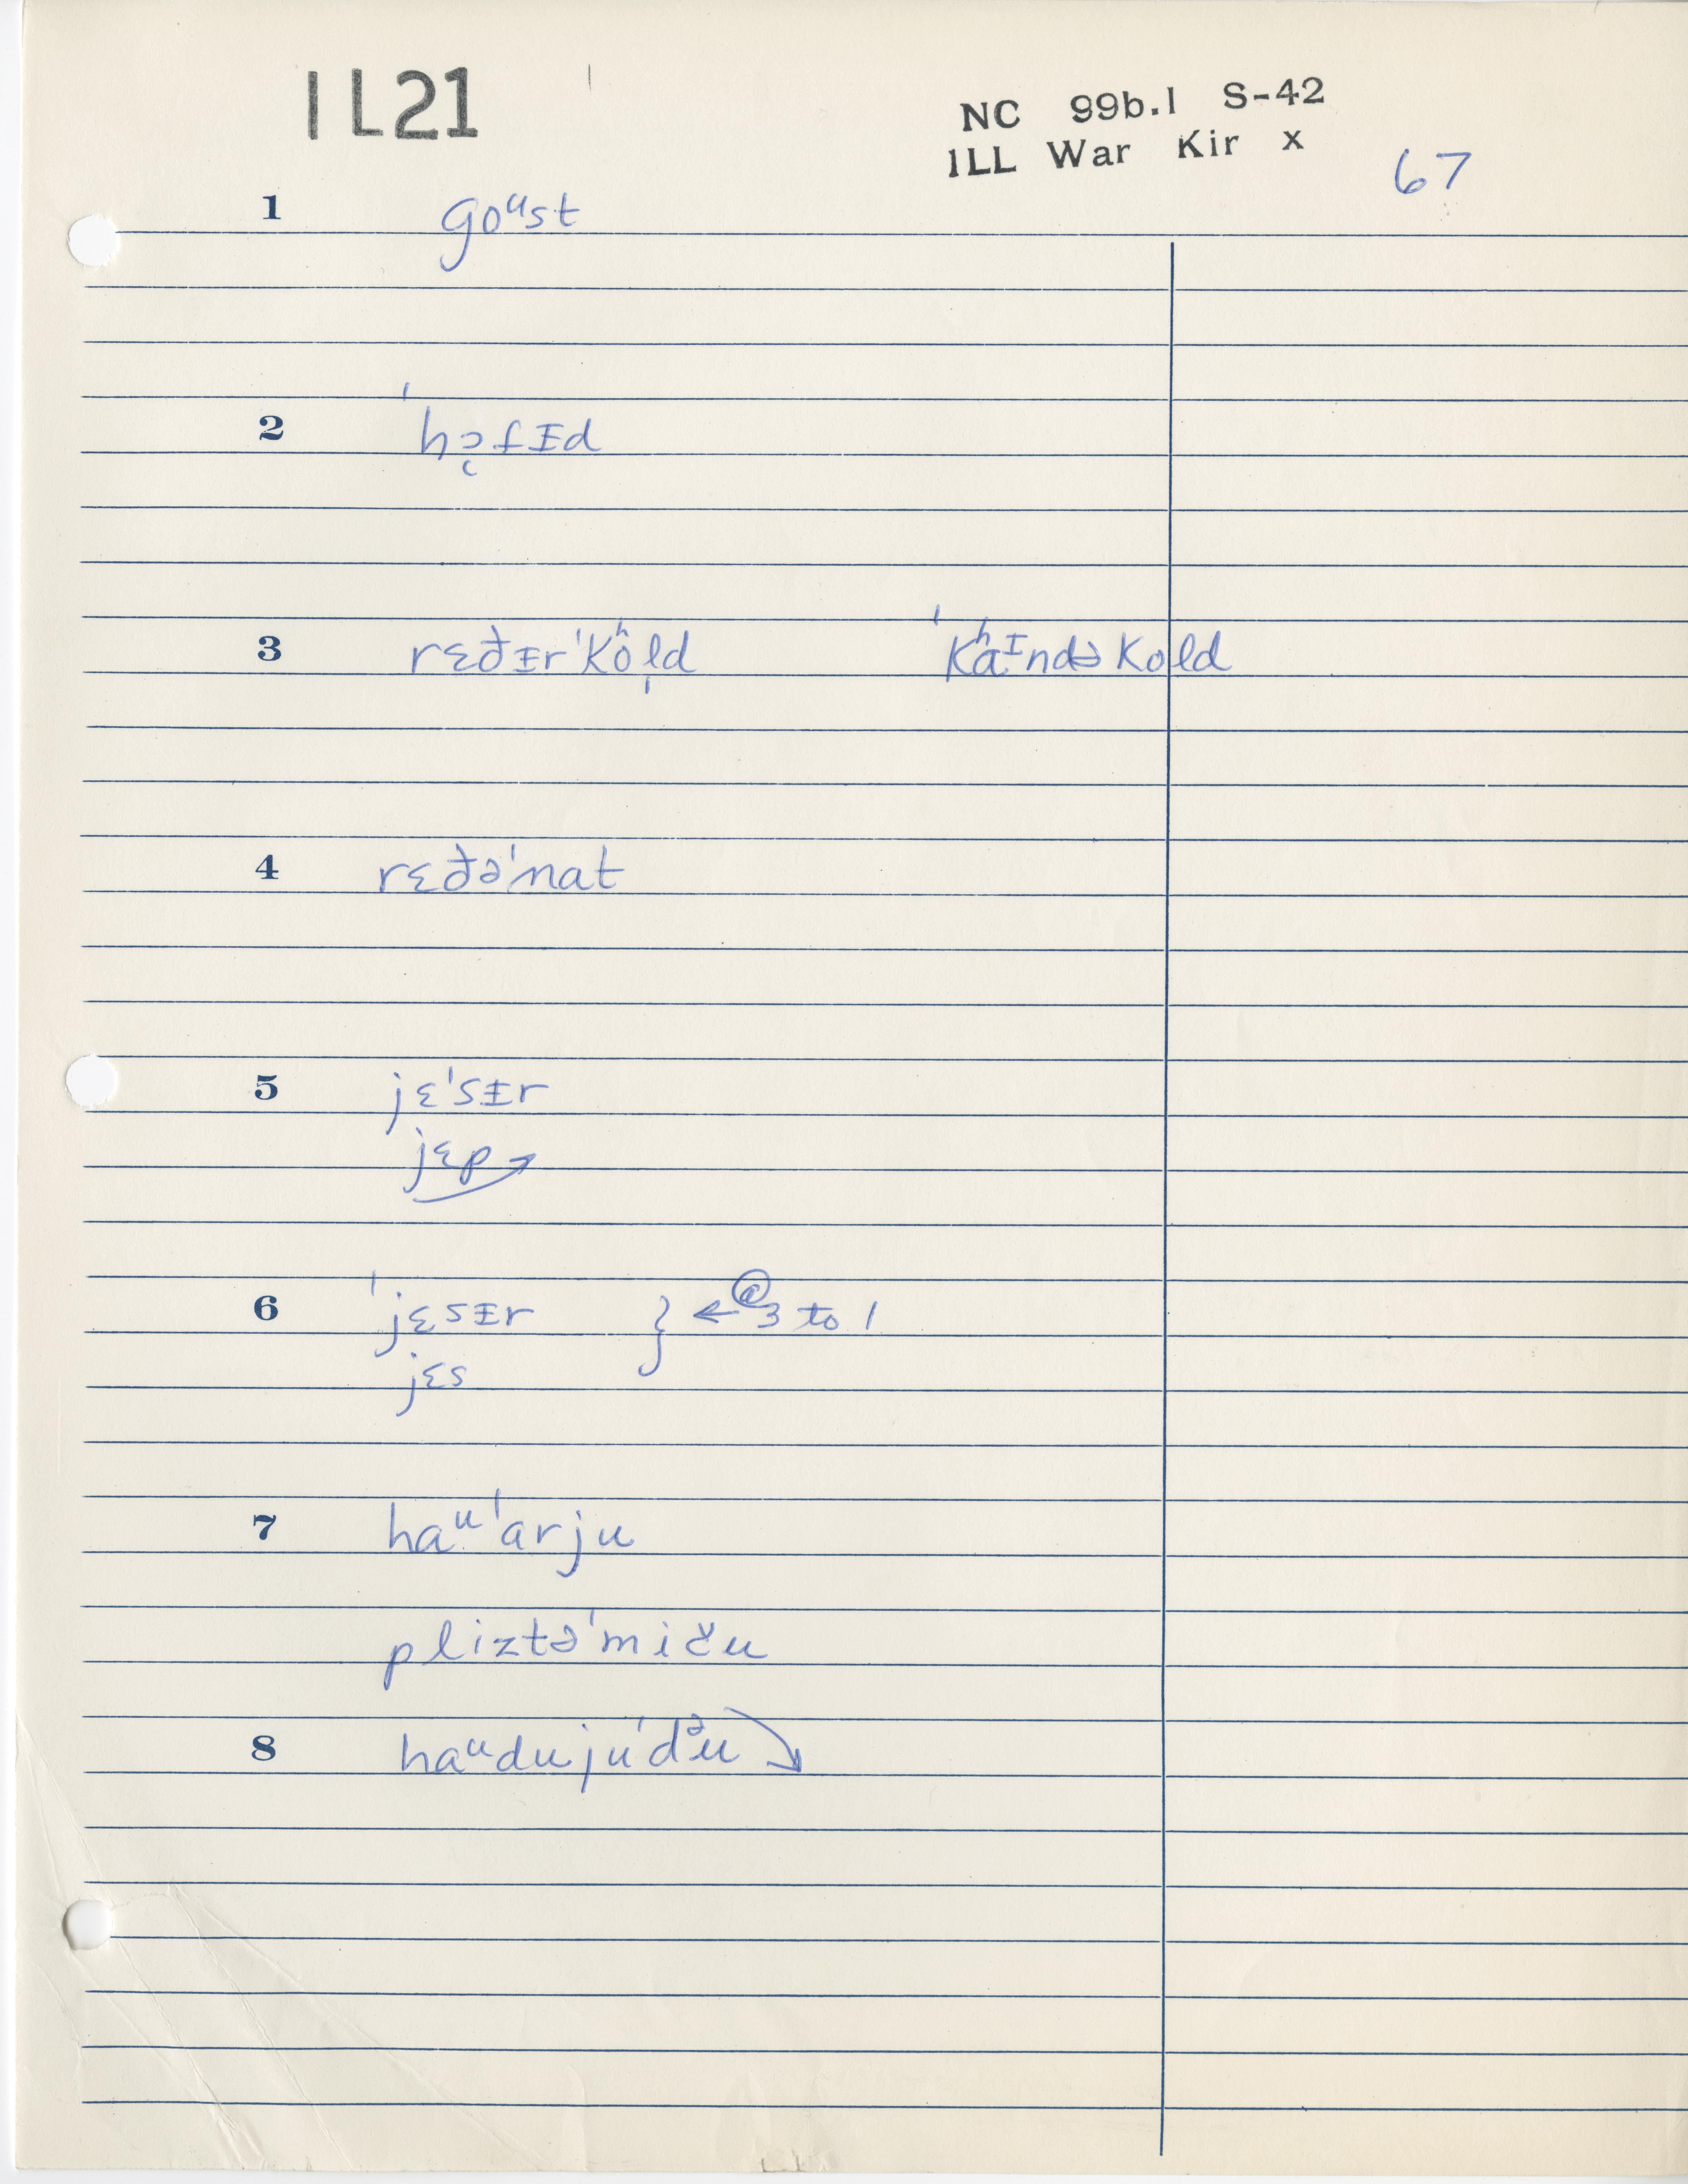 1L21
NC 99b.1 S-42
1LL War Kir x
67
1 goᵘst
2 ˈhɔ̜fɪd
3 rɛðɪrˈkʰo̩ld ˈkʰaᶦndəkold
4 rɛðəˈnat
5 jɛˈsɪr
jɛp↗
6 ˈjɛsɪr } ← @ 3 to 1
jɛs
7 haᵘˈarju
pliztəˈmiču
8 haᵘdujuˈdᵊu↘